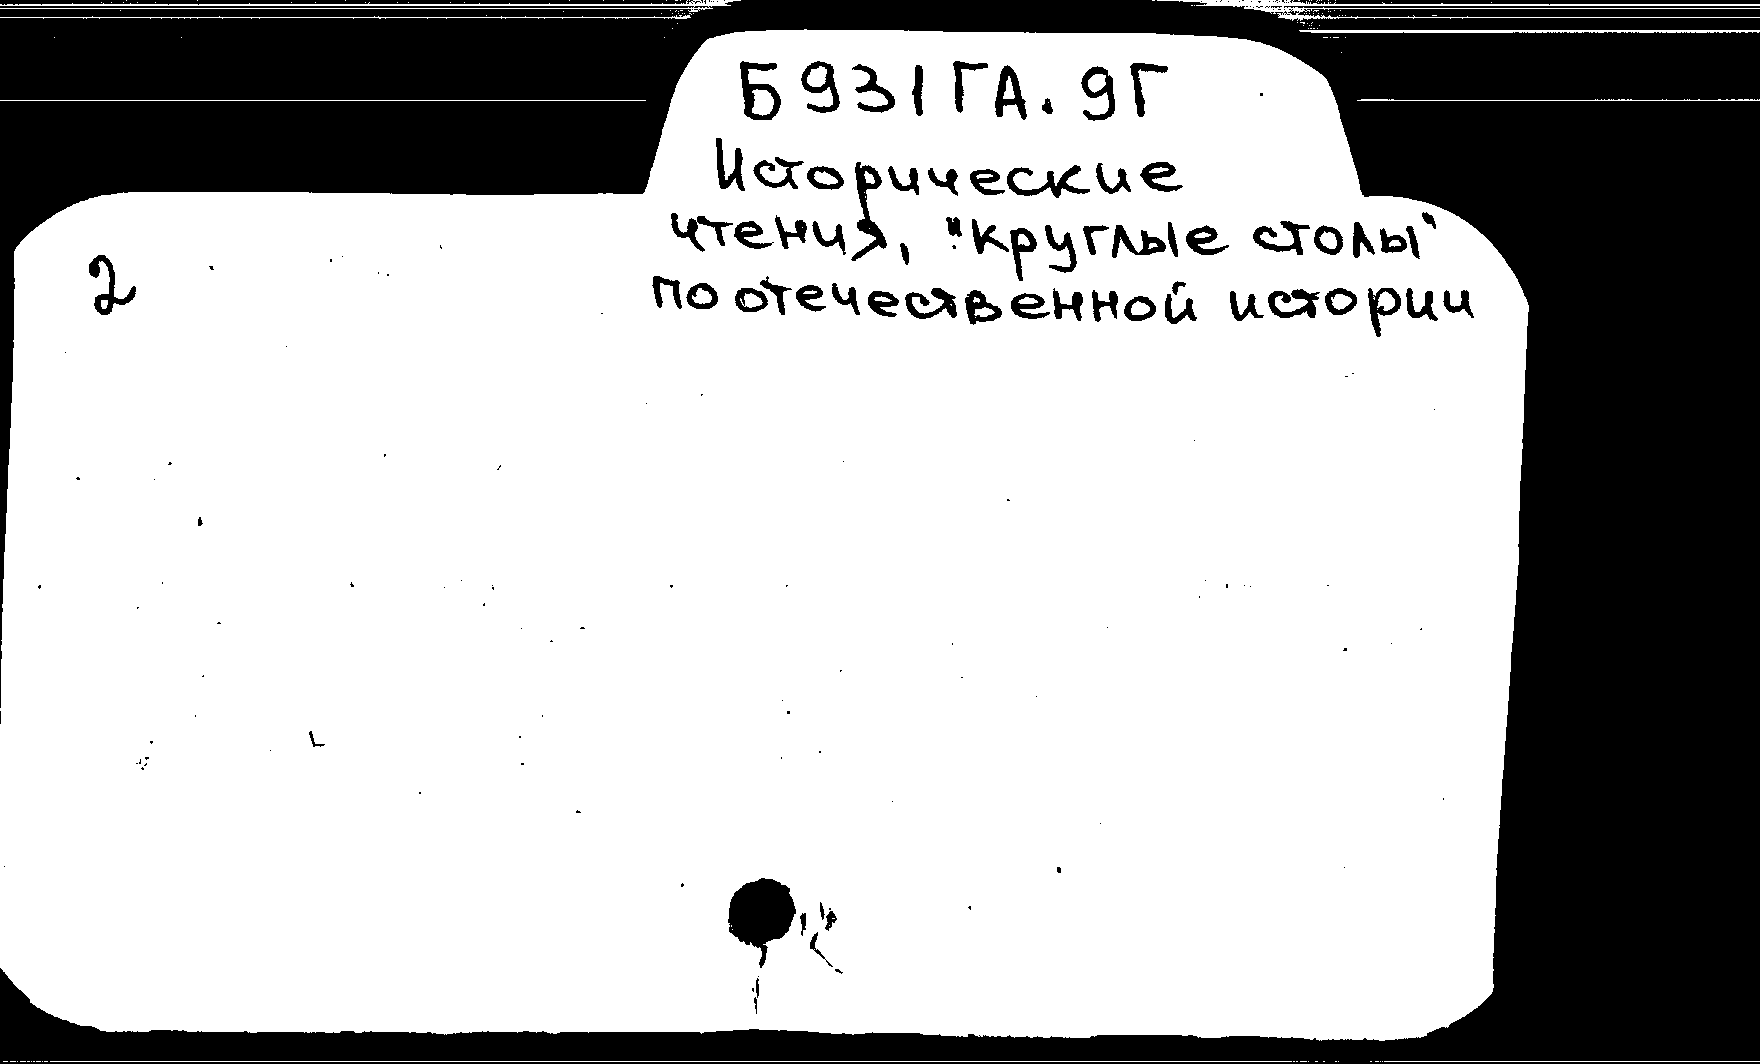 Б931ГА.9Г
Исторические
чтения, "круглые столы"
по отечественной истории
2